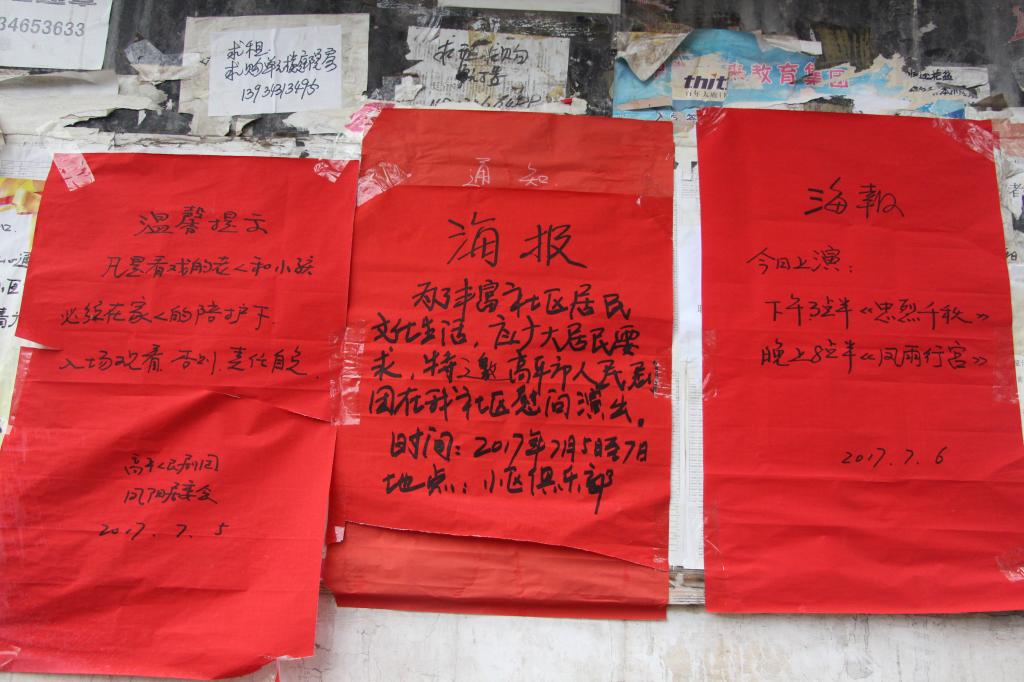 34653633
求租
1393131349
教育集团
thit
温馨提示
凡是看戏的老人和小孩
必须在家人的陪护下
入场观看 否则 责任自负
高平人民剧团
居委会
2017.7.5
通知
海报
为了丰富社区居民
文化生活,应广大居民要
求,特邀高平市人民剧
团在我社区慰问演出。
时间:2017年7月5日至7日
地点:小区俱乐部
海報
今日上演:
下午3点半《忠烈千秋》
晚上8点半《风雨行宫》
2017.7.6